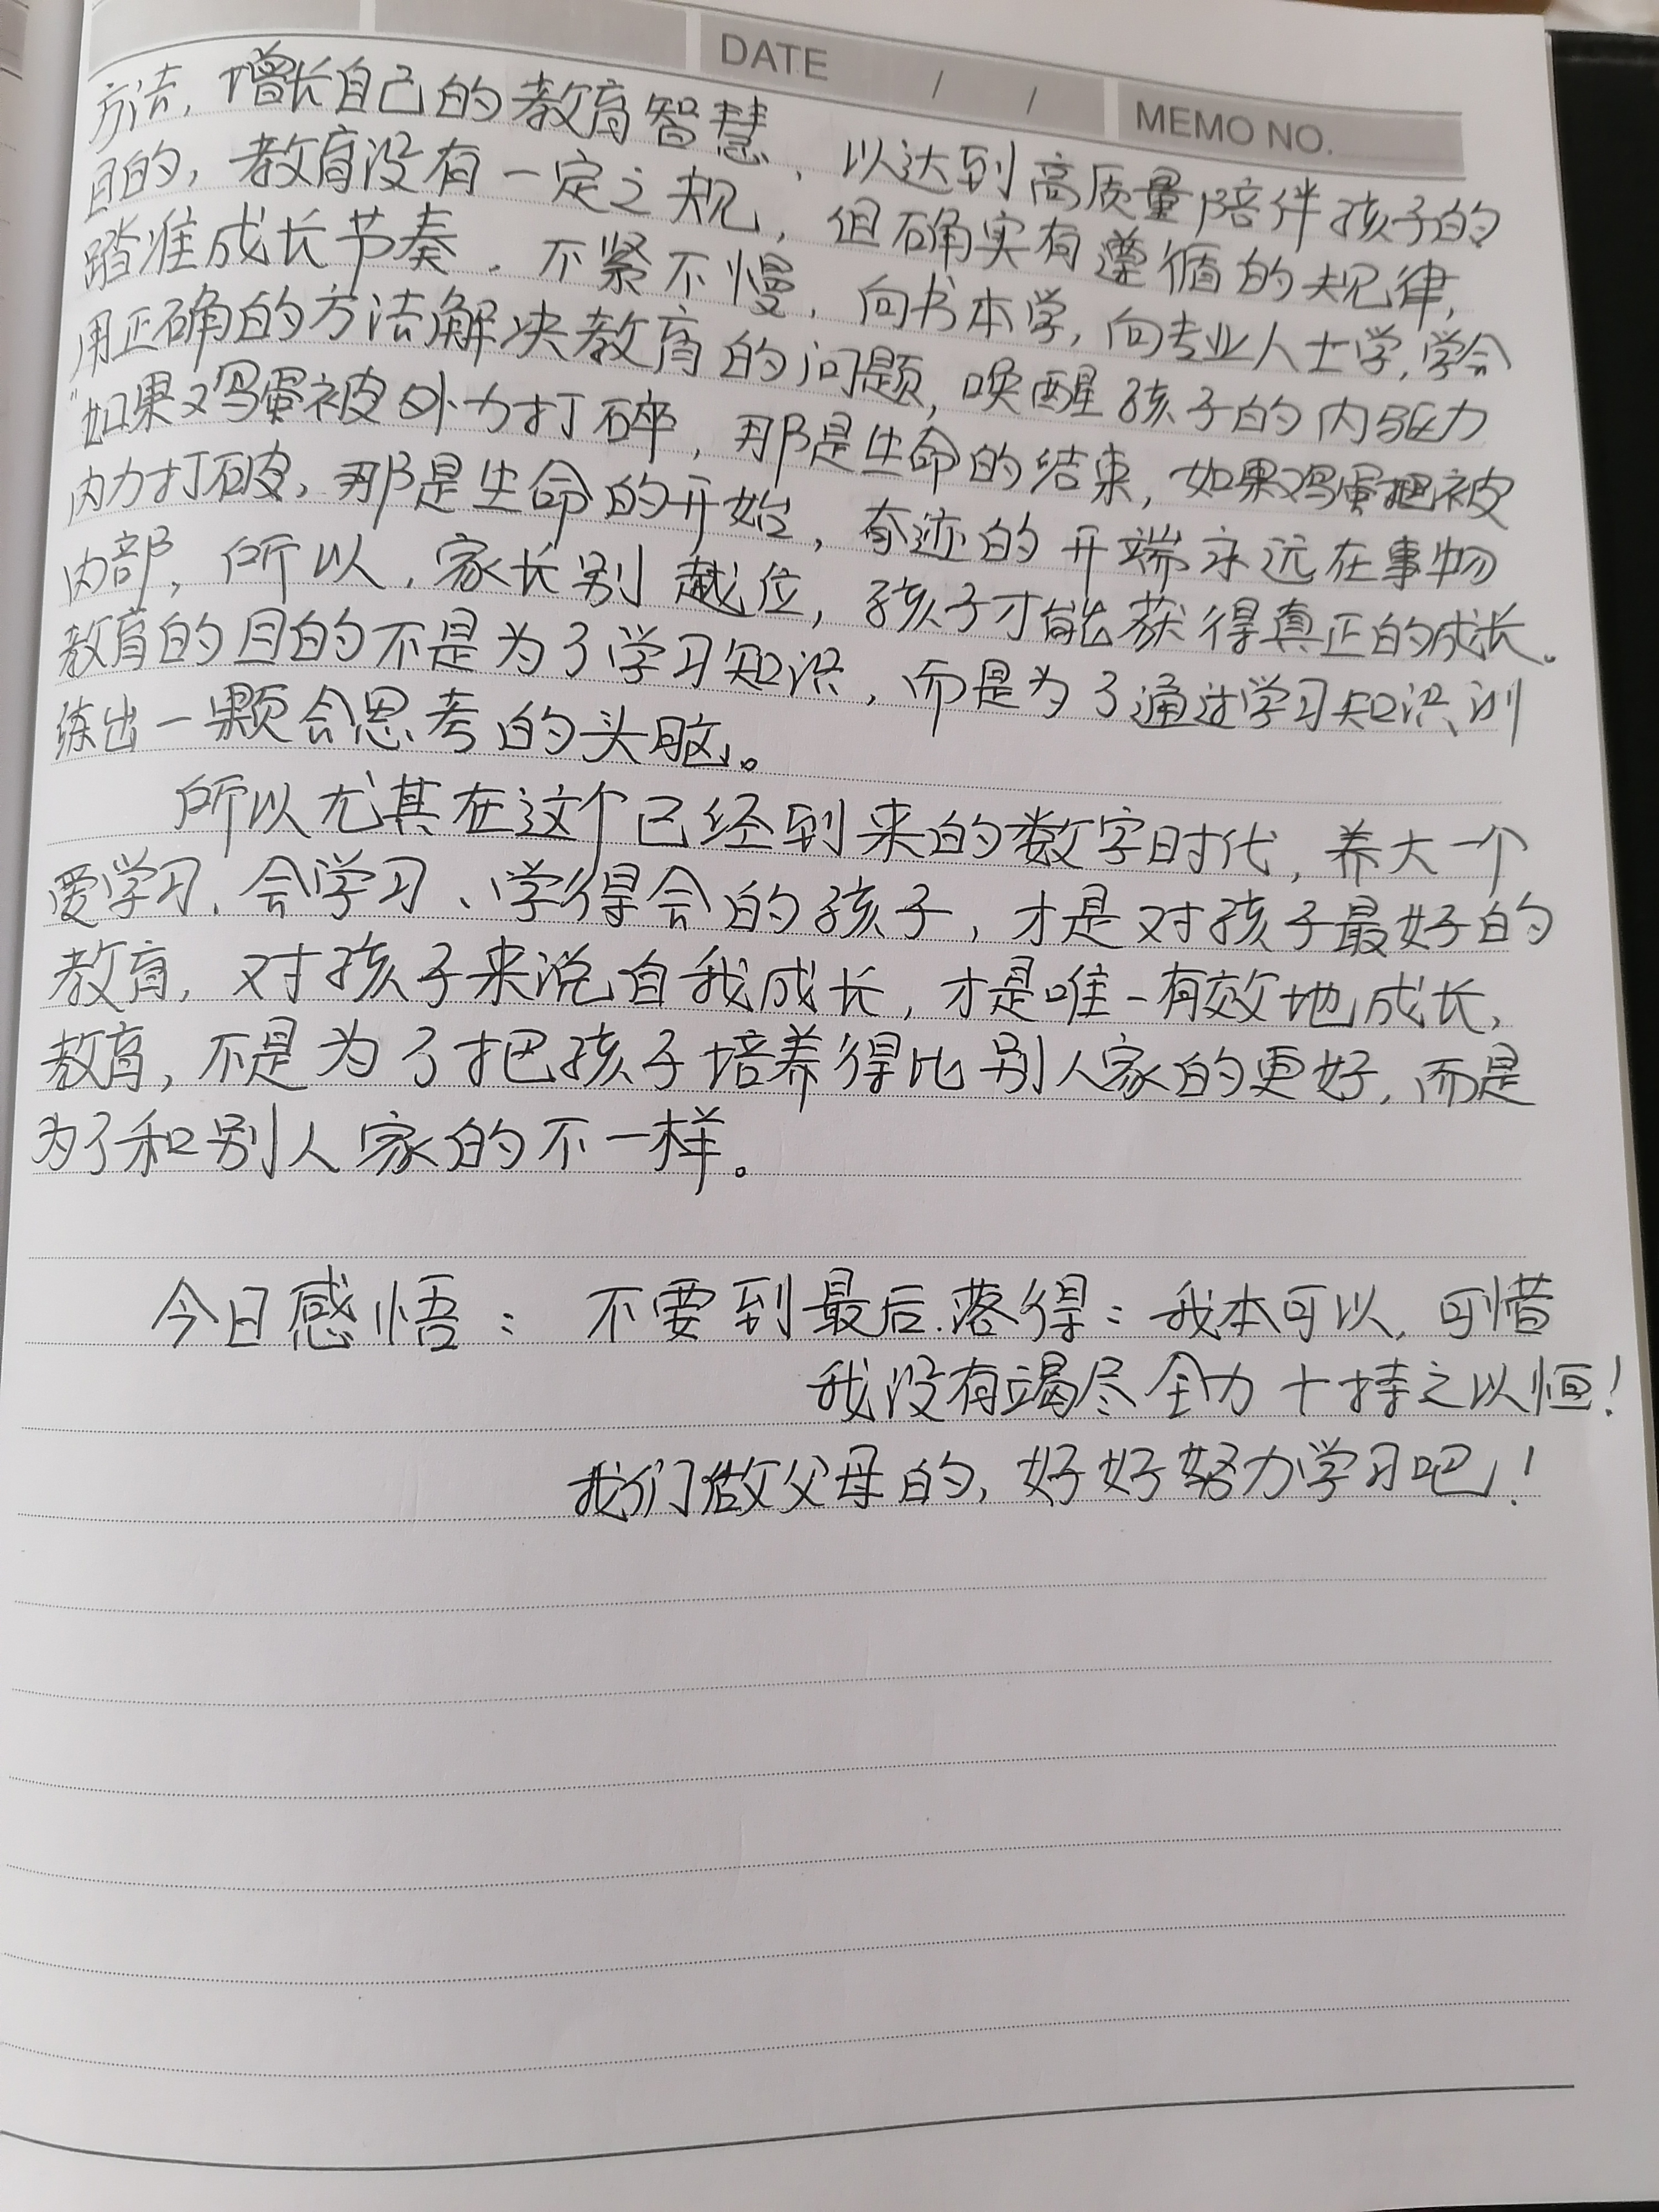 DATE / /
MEMO NO.
方法，增长自己的教育智慧，以达到高质量陪伴孩子的
目的，教育没有一定之规，但确实有遵循的规律，
踏准成长节奏，不紧不慢，向书本学，向专业人士学，学会
用正确的方法解决教育的问题，唤醒孩子的内驱力
"如果鸡蛋被外力打碎，那是生命的结束，如果鸡蛋被
内力打破，那是生命的开始，奇迹的开端永远在事物
内部，所以，家长别越位，孩子才能获得真正的成长。
教育的目的不是为了学习知识，而是为了通过学习知识训
练出一颗会思考的头脑。
所以尤其在这个已经到来的数字时代，养大一个
爱学习、会学习、学得会的孩子，才是对孩子最好的
教育，对孩子来说自我成长，才是唯一有效地成长，
教育，不是为了把孩子培养得比别人家的更好，而是
为了和别人家的不一样。
今日感悟：不要到最后落得：我本可以，可惜
我没有竭尽全力＋持之以恒！
我们做父母的，好好努力学习吧！